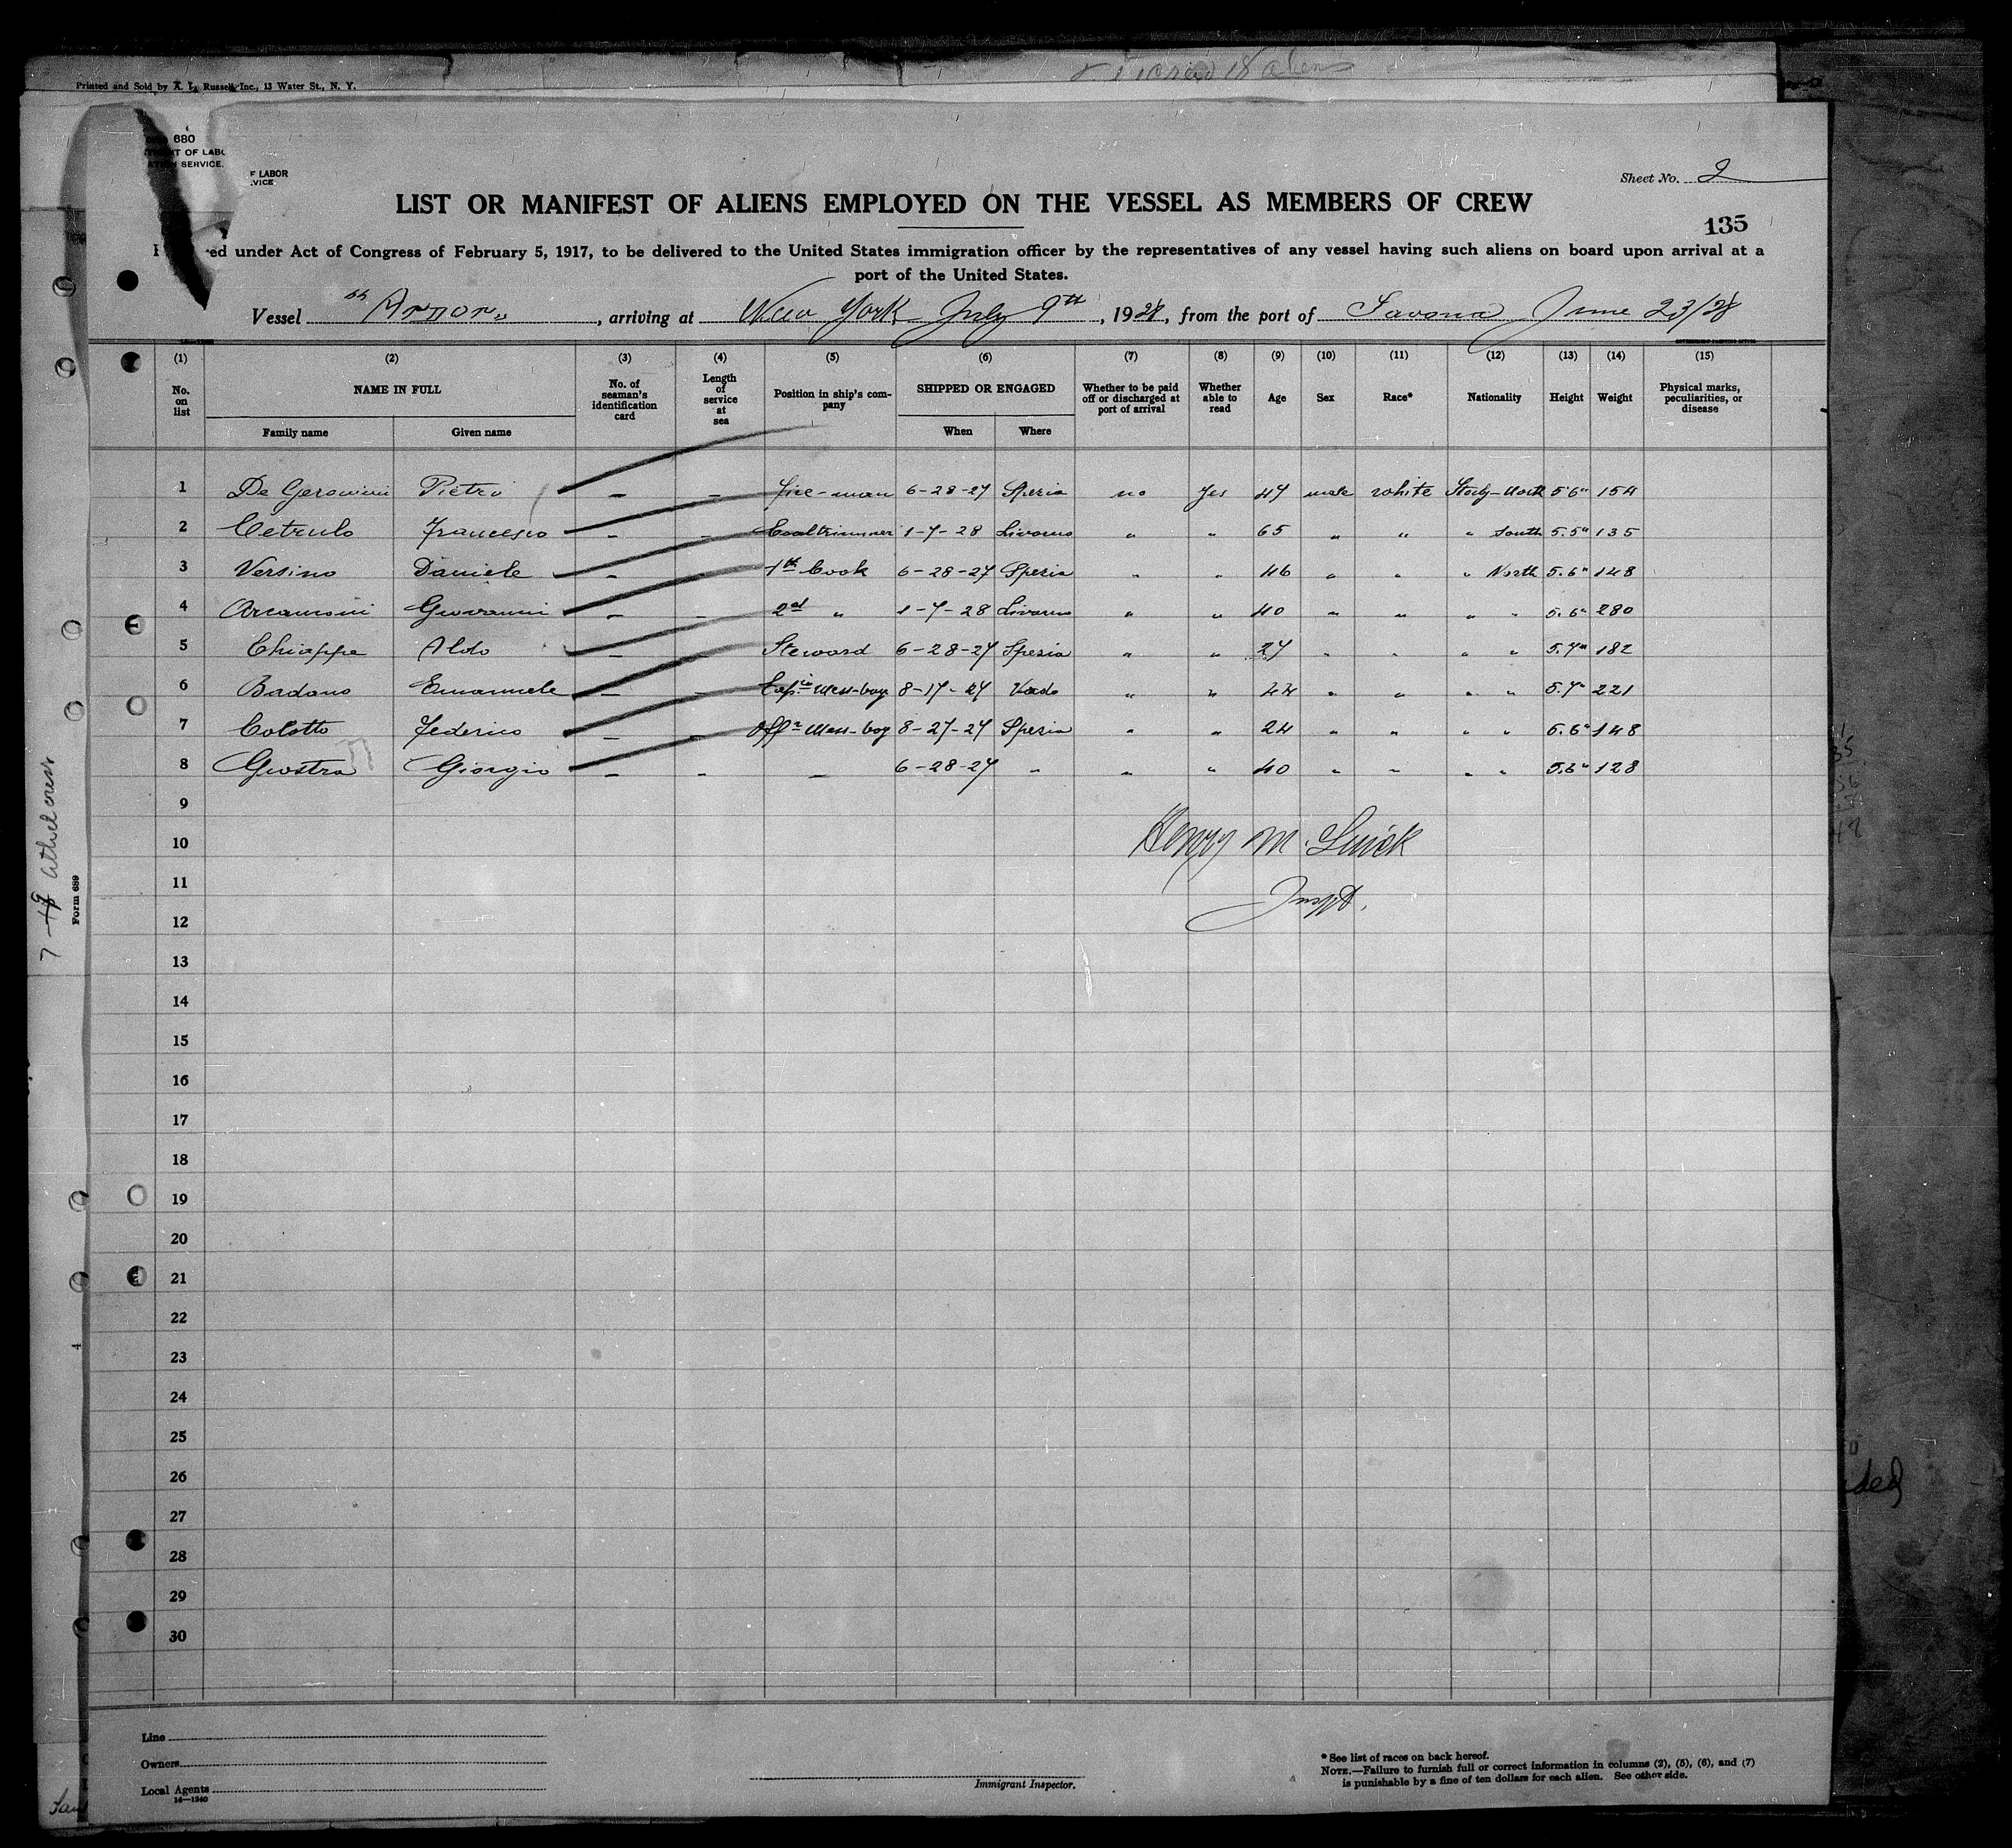 Printed and Sold by X. L. Russell, Inc., 13 Water St., N. Y.
680
OF LABOR
SERVICE.
F LABOR
VICE
Sheet No. 2
LIST OR MANIFEST OF ALIENS EMPLOYED ON THE VESSEL AS MEMBERS OF CREW
135
ed under Act of Congress of February 5, 1917, to be delivered to the United States immigration officer by the representatives of any vessel having such aliens on board upon arrival at a
port of the United States.
Vessel ss , arriving at New York July 9th, 1928, from the port of Savona June 23/28
(1) (2) (3) (4) (5) (6) (7) (8) (9) (10) (11) (12) (13) (14) (15)
No. on list NAME IN FULL No. of seaman's identification card Length of service at sea Position in ship's company SHIPPED OR ENGAGED Whether to be paid off or discharged at port of arrival Whether able to read Age Sex Race* Nationality Height Weight Physical marks, peculiarities, or disease
Family name Given name When Where
1 Pietro — — fire-man 6-28-27 Spezia no Yes 47 male white Italy-North 5.6" 154
2 Cetrulo Francesco — — Coaltrimmer 1-7-28 Livorno " " 65 " " " South 5.5" 135
3 Versino Daniele — — 1st Cook 6-28-27 Spezia " " 46 " " " North 5.6" 148
4 Giovanni — — 2nd " 1-7-28 Livorno " " 40 " " " " 5.6" 280
5 Chiappe Aldo — — Steward 6-28-27 Spezia " " 27 " " " " 5.7" 182
6 Badano Emanuele — — Mess-boy 8-17-27 Vado " " 44 " " " " 5.7" 221
7 Colotto Federico — — Off.r Mess-boy 8-27-27 Spezia " " 24 " " " " 5.6" 148
8 Giostra Giorgio — — — 6-28-27 " " " 40 " " " " 5.6" 128
9
10 Henry M.
11
12 Inspt.
13
14
15
16
17
18
19
20
21
22
23
24
25
26
27
28
29
30
Form 689
Line
Owners
Local Agents
14—1240
Immigrant Inspector.
* See list of races on back hereof.
NOTE.—Failure to furnish full or correct information in columns (2), (5), (6), and (7)
is punishable by a fine of ten dollars for each alien. See other side.